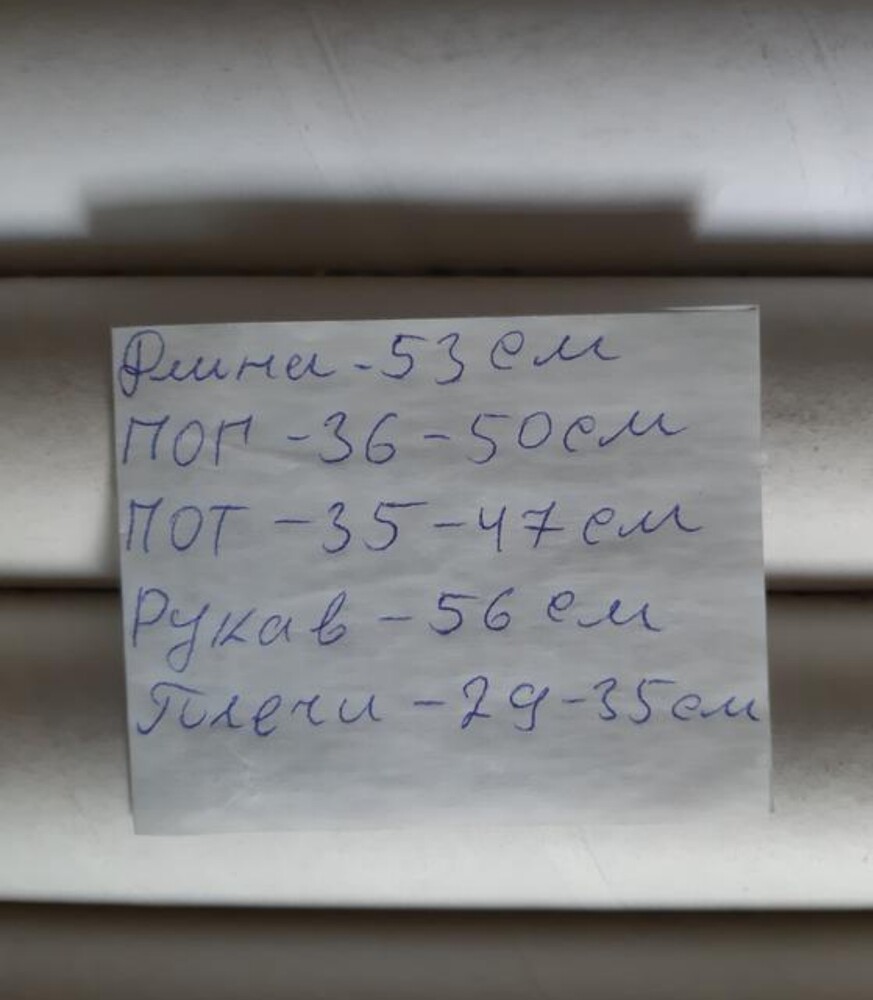 Длина - 53 см
ПОГ - 36 - 50 см
ПОТ - 35 - 47 см
Рукав - 56 см
Плечи - 29 - 35 см